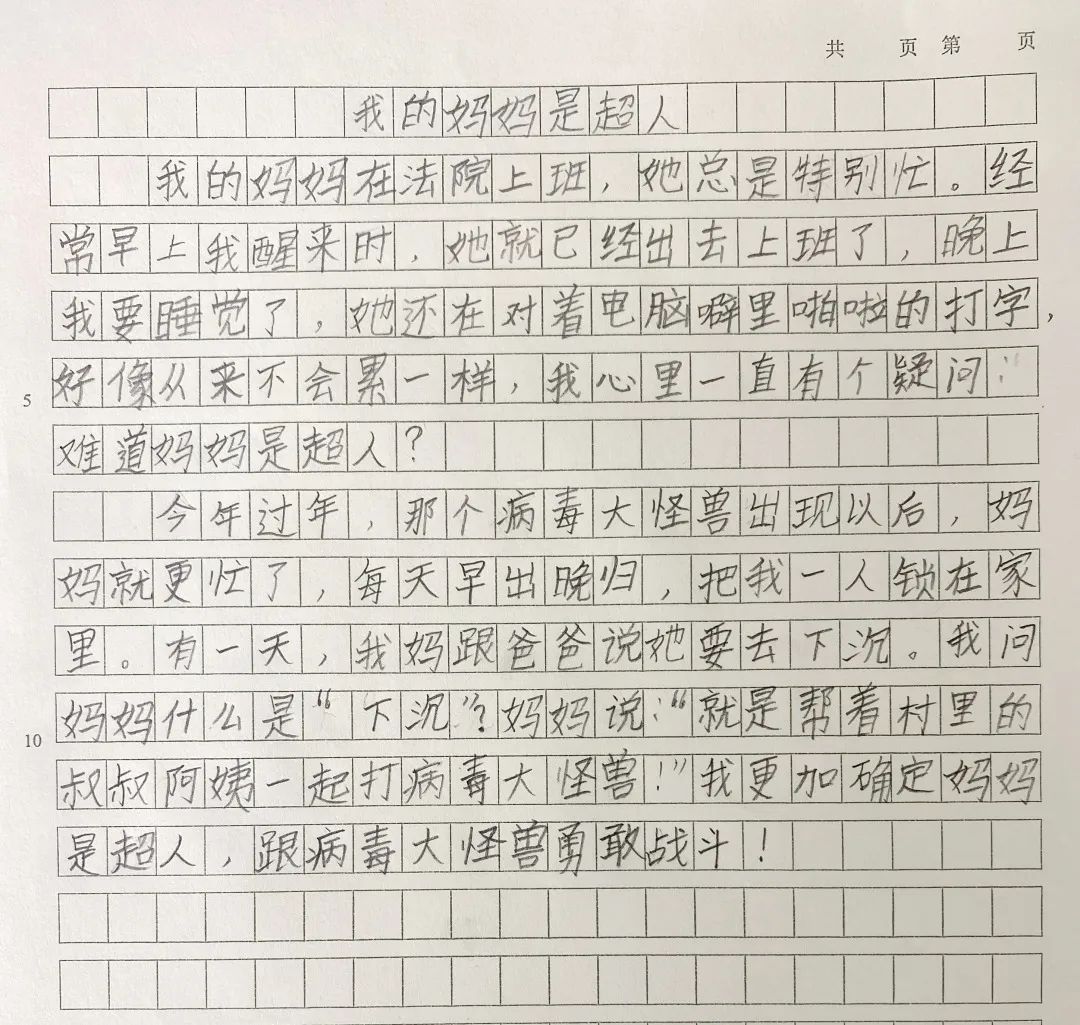 共 页 第 页
我的妈妈是超人
我的妈妈在法院上班，她总是特别忙。经
常早上我醒来时，她就已经出去上班了，晚上
我要睡觉了，她还在对着电脑噼里啪啦的打字，
5 好像从来不会累一样，我心里一直有个疑问：“
难道妈妈是超人？
今年过年，那个病毒大怪兽出现以后，妈
妈就更忙了，每天早出晚归，把我一人锁在家
里。有一天，我妈跟爸爸说她要去下沉。我问
10 妈妈什么是“下沉”？妈妈说：“就是帮着村里的
叔叔阿姨一起打病毒大怪兽！”我更加确定妈妈
是超人，跟病毒大怪兽勇敢战斗！